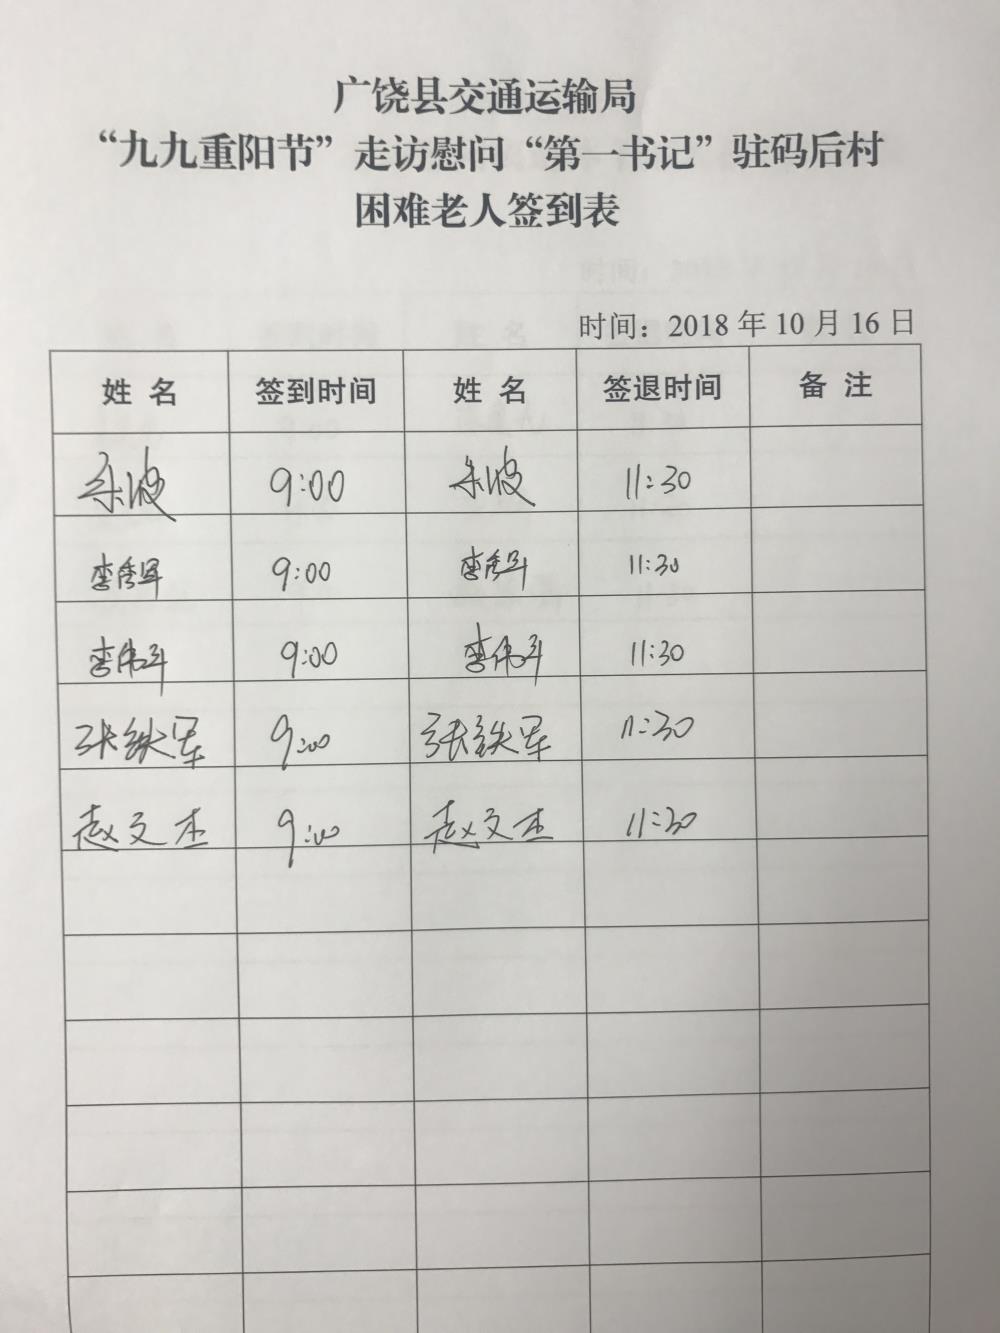 广饶县交通运输局
“九九重阳节”走访慰问“第一书记”驻码后村
困难老人签到表
时间：2018 年 10 月 16 日
姓 名 签到时间 姓 名 签退时间 备 注
9:00 11:30
9:00 11:30
9:00 11:30
张铁军 9:00 张铁军 11:30
赵文杰 9:00 赵文杰 11:30